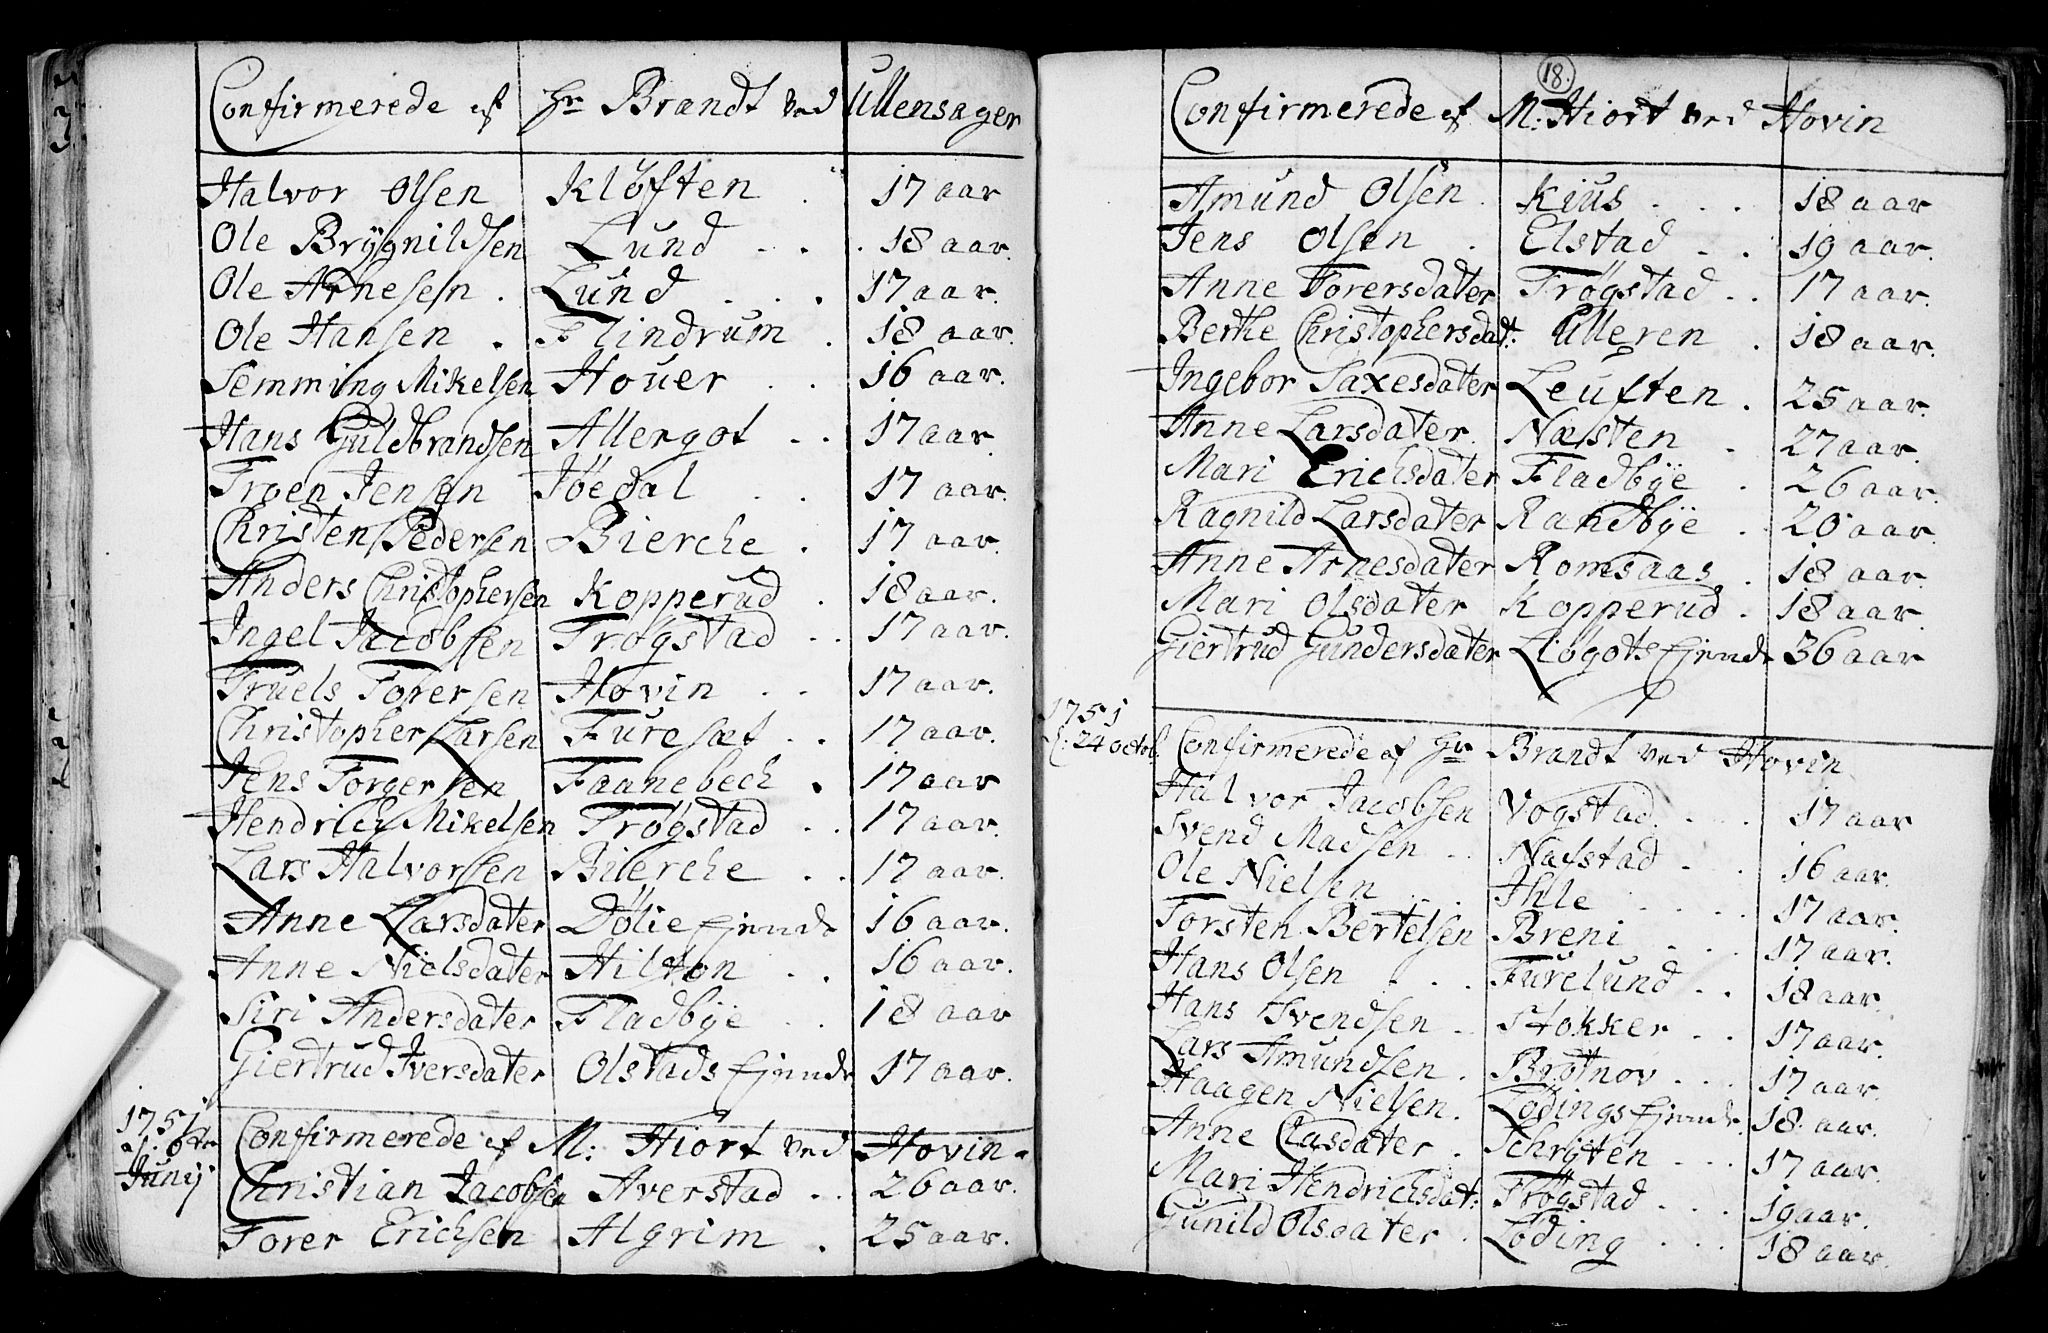 Confirmerede af Hr Brandt ved Ullensager
Halvor Olsen Kløften . 17 aar
Ole Brÿgnildsen Lund . . . 18 aar.
Ole Arnesen . Lund . . . 17 aar.
Ole Hansen . Flindrum . 18 aar.
Semming Mikelsen Houer . . 16 aar.
Hans Guldbrandsen Allergot . . 17 aar.
Troen Jensen Jöedal . . 17 aar.
Christen Pedersen Bierche . 17 aar.
Anders Christophersen Kopperud . 18 aar.
Ingel Jacobsen Trøgstad . . 17 aar.
Truels Torersen Hovin . . 17 aar.
Christopher Larsen Furesæt . . 17 aar.
Jens Torgersen Faanebech . 17 aar
Hendrich Mikelsen Trøgstad . . 17 aar.
Lars Halvorsen Bierche . . 17 aar.
Anne Larsdater Dölie Ejende 16 aar.
Anne Nielsdater Hilton . . 16 aar.
Siri Andersdater Fladbÿe . . 18 aar
Giertrud Iversdater Olstads Ejende 17 aar.
1751
Junij
Confirmerede af M: Hiort ved Hovin.
Christian Jacobsen Averstad . . 26 aar.
Torer Erichsen Algrim . 25 aar.
18.
Confirmerede af M: Hiort ved Hovin
Amund Olsen . Kius . . . 18 aar
Jens Olsen . Elstad . . 19 aar.
Anne Torersdater Trøgstad . . 17 aar.
Berthe Christophersdat: Ulleren . 18 aar.
Ingebor Saxesdater Leuften . 25 aar.
Anne Larsdater. Næsten . 27 aar.
Mari Erichsdater Fladbÿe . 26 aar.
Ragnild Larsdater Randbÿe . 20 aar.
Anne Arnesdater Romsaas . 18 aar.
Mari Olsdater Kopperud . 18 aar.
Giertrud Gundersdater Liøgots Ejende 36 aar
1751
d. 24 octob.
Confirmerede af Hr Brandt ved Hovin
Halvor Jacobsen Vogstad . . . 17 aar
Svend Madsen . . Nafstad . . 16 aar.
Ole Nielsen . . Ihle . . . . 17 aar.
Torsten Bertelsen Breni . . . 17 aar.
Hans Olsen . . . Furelund . . 18 aar.
Hans Svendsen . Stokker . . 17 aar.
Lars Amundsen . Brotnov . . . 17 aar.
Haagen Nielsen . Lödings Ejende. 18 aar.
Anne Clasdater . Schrÿten . . . 17 aar.
Mari Hendrichsdat: Trøgstad . . . 19 aar.
Gunild Olsdater . Löding . . . 18 aar.